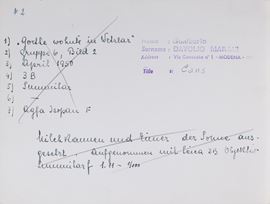 # 2
1) "Goethe wohnte in Wetzlar"
2) Gruppe 6, Bild 2
3) April 1950
4) 3 B
5) Summitar
6) —
7) Agfa Isopan F
Name : Gualtiero
Surname : DAVOLIO MARANI
Address : Via Canaceto n° 1 - MODENA
Title : Cans
Milchkannen und Eimer der Sonne aus-
gesetzt, aufgenommen mit Leica 3B Objektiv
Summitar f.